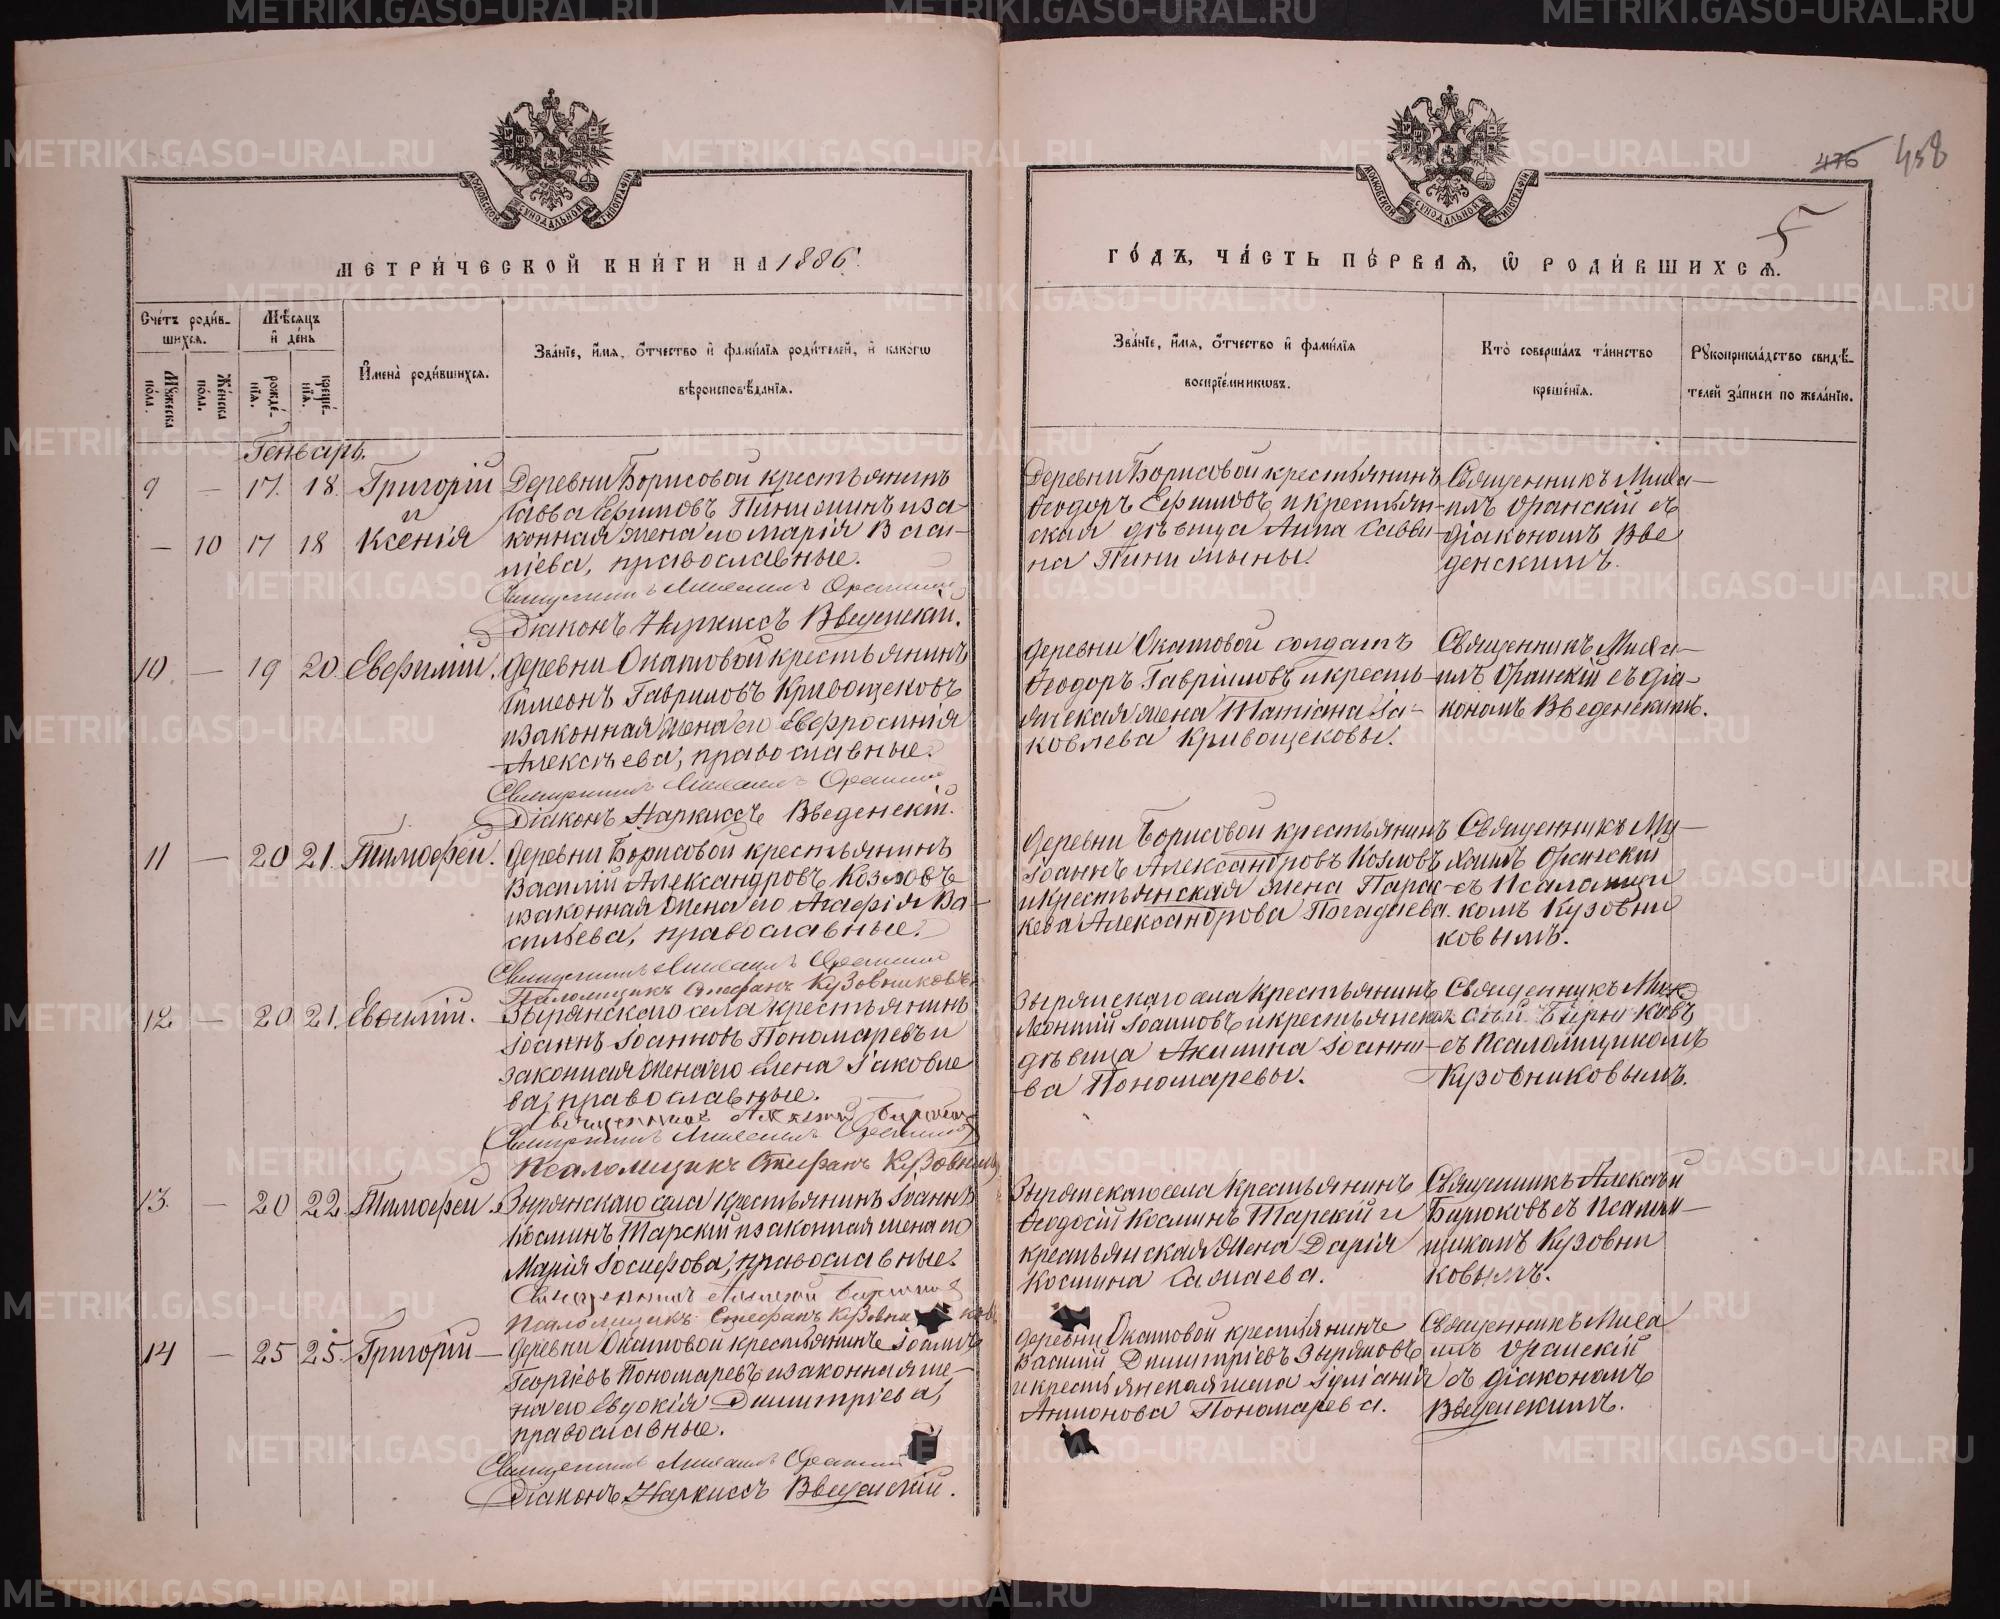 МЕТРИ́ЧЕСКОЙ КНИ́ГИ НА 1886
ГО́ДЪ, ЧА́СТЬ ПЕ́РВАѦ, Ѿ РОДИ́ВШИХСѦ.
476 458
5
МОСКОВСКОЙ СѴНОДАЛЬНОЙ ТИПОГРАФІИ
МОСКОВСКОЙ СѴНОДАЛЬНОЙ ТИПОГРАФІИ
Сче́тъ роди́в-
шихсѧ.
Мꙋжеска по́ла.
Же́нска по́ла.
Мѣ́сѧцъ и де́нь
рожде́-
нїѧ.
креще́-
нїѧ.
Имена̀ роди́вшихсѧ.
Зва́нїе, и́мѧ, ѻ́тчество и фами́лїѧ роди́телей, и како́гѡ
вѣроисповѣ́данїѧ.
Зва́нїе, и́мѧ, ѻ́тчество и фами́лїѧ
воспрїе́мникѡвъ.
Кто̀ соверша́лъ та́инство
креще́нїѧ.
Рꙋкоприкла́дство свидѣ́-
телей за́писи по жела́нїю.
Генварь.
9 — 17. 18. Григорій
и
— 10 17 18 Ксенія
Деревни Борисовой крестьянинъ
Савва Ефимовъ Пинигинъ и за-
конная жена его Марія Васи-
ліева, православные.
Священникъ Михаилъ Оранскій
Діаконъ Наркиссъ Введенскій.
Деревни Борисовой крестьянинъ
Ѳеодоръ Ефимовъ и крестьян-
ская дѣвица Анна Савви-
на Пинигины.
Священникъ Миха-
илъ Оранскій съ
діакономъ Вве
денскимъ.
10. — 19 20. Евфимій.
Деревни Окатовой крестьянинъ
Симеонъ Гавриловъ Кривощековъ
и законная жена его Евфросинія
Алексѣева, православные.
Священникъ Михаилъ Оранскій
Діаконъ Наркиссъ Введенскій.
Деревни Окатовой солдатъ
Ѳеодоръ Гавріиловъ и кресть-
янская жена Татіана Іа-
ковлева Кривощековы.
Священникъ Миха-
илъ Оранскій съ діа-
кономъ Введенскимъ.
11 — 20 21. Тимоѳей.
Деревни Борисовой крестьянинъ
Василій Александровъ Козловъ
и законная жена его Агафія Ва-
сильева, православные.
Священникъ Михаилъ Оранскій
Псаломщикъ Стефанъ Кузовниковъ
Деревни Борисовой крестьянинъ
Іоаннъ Александровъ Козловъ
и крестьянская жена Парас-
кева Александрова Погадаева.
Священникъ Ми-
хаилъ Оранскій
съ Псаломщи
комъ Кузовни
ковымъ.
12 — 20 21.
Зырянскаго села крестьянинъ
Іоаннъ Іоанновъ Пономаревъ и
законная жена его Елена Іаковле
ва, православные.
Священникъ Алексій Бирюковъ
Священникъ Михаилъ Оранскій
Псаломщикъ Стефанъ Кузовник
Зырянскаго села крестьянинъ
Леонтій Іоанновъ и крестьянская
дѣвица Акилина Іоанно-
ва Пономаревы.
Священникъ
Бирюковъ
съ Псаломщикомъ
Кузовниковымъ.
13. — 20 22. Тимоѳей.
Зырянскаго села крестьянинъ Іоаннъ
Косминъ Тарскій и законная жена его
Марія Іосифова, православные.
Священникъ Алексій Бирюковъ
Псаломщикъ Стефанъ Кузовни ковъ
Зырянскаго села крестьянинъ
Ѳеодосій Косминъ Тарскій и
крестьянская жена Дарія
Космина
Священникъ Алексѣй
Бирюковъ съ Псалом-
щикомъ Кузовни
ковымъ.
14 — 25 25. Григорій —
Деревни Окатовой крестьянинъ Іоаннъ
Георгіевъ Пономаревъ и законная же-
на его Евдокія Димитріева,
православные.
Священникъ Михаилъ Оранскій
Діаконъ Наркиссъ Введенскій.
Деревни Окатовой крестьянинъ
Василій Димитріевъ Зыряновъ
и крестьянская жена Іуліанія
Антонова Пономарева.
Священникъ Миха
илъ Оранскій
съ діакономъ
Введенскимъ.